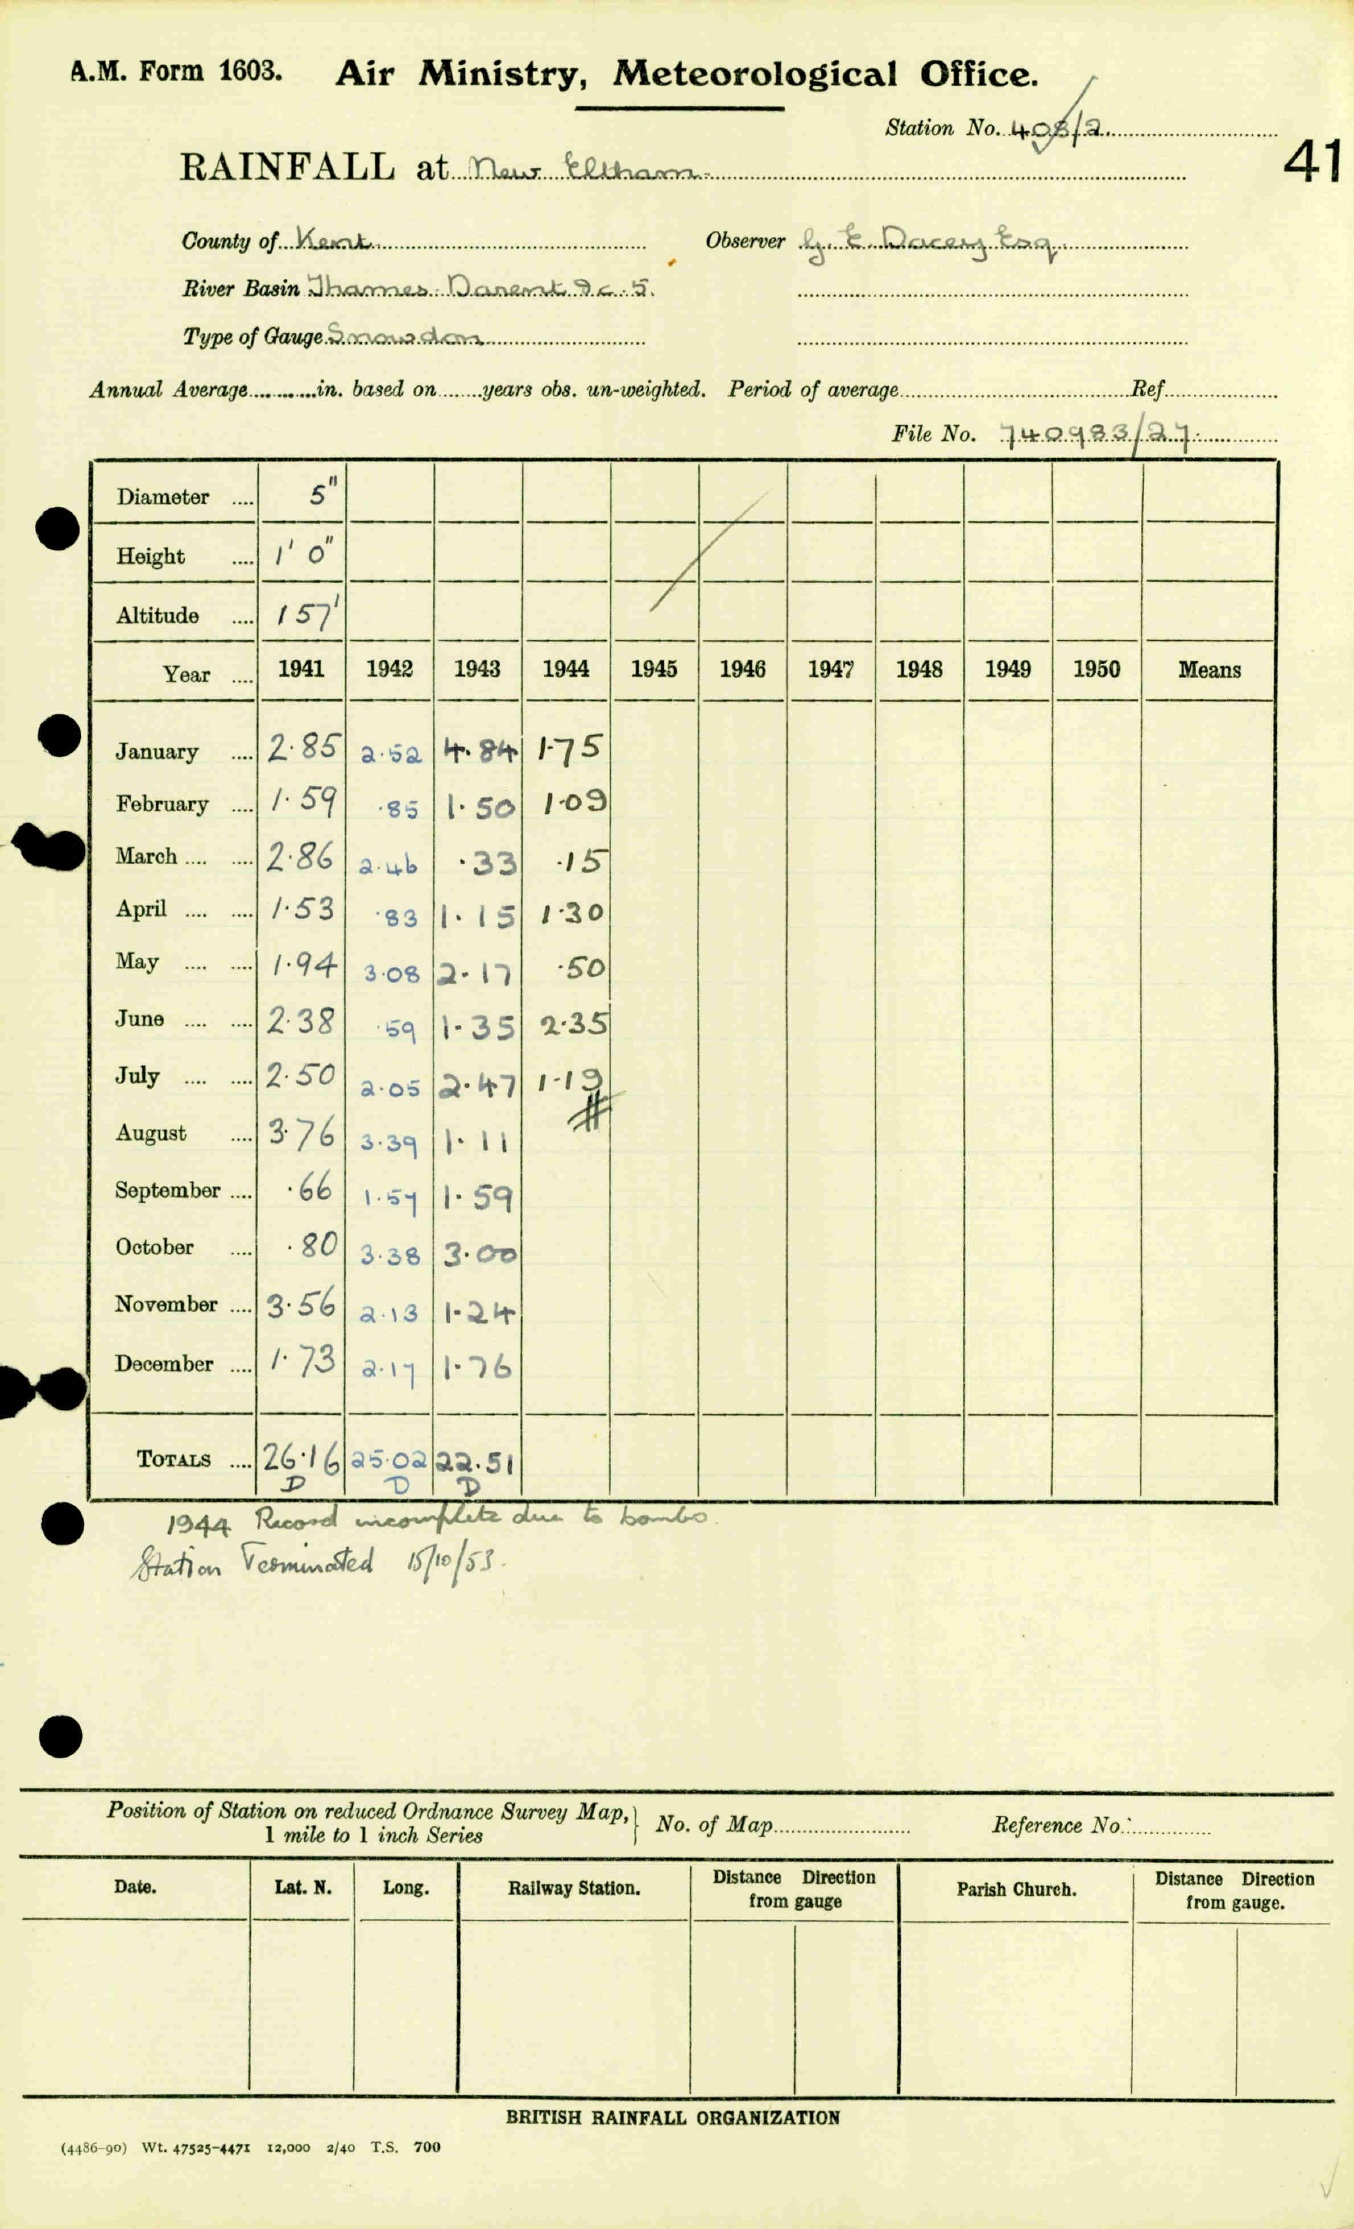 A.M. Form 1603. Air Ministry, Meteorological Office.
Station No. 408/2
41
RAINFALL at New Eltham
County of Kent Observer G. E. Dacey Esq.
River Basin Thames Darent &c 5.
Type of Gauge Snowdon
Annual Average in. based on years obs. un-weighted. Period of average Ref.
File No. 740983/27
Diameter .... 5"
Height .... 1' 0"
Altitude .... 157'
Year .... 1941 1942 1943 1944 1945 1946 1947 1948 1949 1950 Means
January .... 2.85 2.52 4.84 1.75
February .... 1.59 .85 1.50 1.09
March .... .... 2.86 2.46 .33 .15
April .... .... 1.53 .83 1.15 1.30
May .... .... 1.94 3.08 2.17 .50
June .... .... 2.38 .59 1.35 2.35
July .... .... 2.50 2.05 2.47 1.19
August .... 3.76 3.39 1.11
September .... .66 1.57 1.59
October .... .80 3.38 3.00
November .... 3.56 2.13 1.24
December .... 1.73 2.17 1.76
TOTALS .... 26.16 25.02 22.51
D D D
1944 Record incomplete due to bombs.
Station Terminated 15/10/53.
Position of Station on reduced Ordnance Survey Map, No. of Map Reference No.
1 mile to 1 inch Series
Date. Lat. N. Long. Railway Station. Distance from gauge Direction Parish Church. Distance from gauge. Direction
BRITISH RAINFALL ORGANIZATION
(4486-90) Wt. 47525-4471 12,000 2/40 T.S. 700